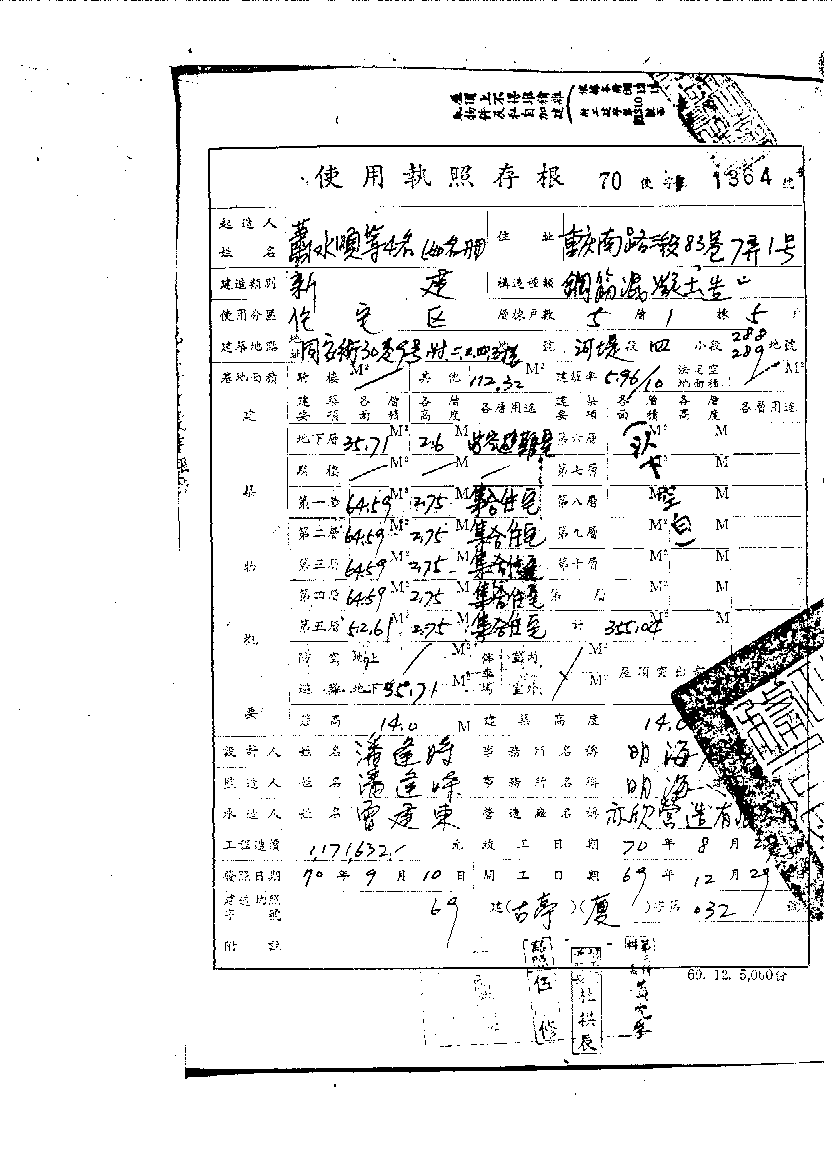 使用執照存根 70 使字第 1364 號
起造人姓名 蕭水順等4名(如名冊) 住址 重慶南路三段83巷7弄1号
建造類別 新建 構造種類 鋼筋混凝土造
使用分區 住宅區 層棟戶數 5層1棟5戶
建築地點 同安街30巷 號 河堤段四小段 288 289 地號
基地面積 騎樓 M² 其他 112.32 M² 建蔽率 5.96/10 法定空地面積 M²
建築要項 各層面積 各層高度 各層用途 建築要項 各層面積 各層高度 各層用途
地下層 35.71 M² 2.6 M 防空避難室 第六層 M² M
騎樓 M² M 第七層 M² M
第一層 64.59 M² 2.75 M 集合住宅 第八層 M² M
第二層 64.59 M² 2.75 M 集合住宅 第九層 M² M
第三層 64.59 M² 2.75 M 集合住宅 第十層 M² M
第四層 64.59 M² 2.75 M 集合住宅 第 層 M² M
第五層 52.61 M² 2.75 M 集合住宅 計 355.04 M² M
(以下空白)
建築物概要
防空避難 地上 M² 停車場 室內 M²
地下 35.71 室外 M² 屋頂突出
簷高 14.0 M 建築高度 14.0
設計人 姓名 潘達時 事務所名稱 明海
監造人 姓名 潘達時 事務所名稱 明海
承造人 姓名 雷建東 營造廠名稱 亦欣營造有限公司
工程造價 1,171,632.- 元 竣工日期 70年8月2
發照日期 70年9月10日 開工日期 69年12月29
建造執照字號 69 建(古亭)(廈)字第 032 號
附註
69.12.5,000份